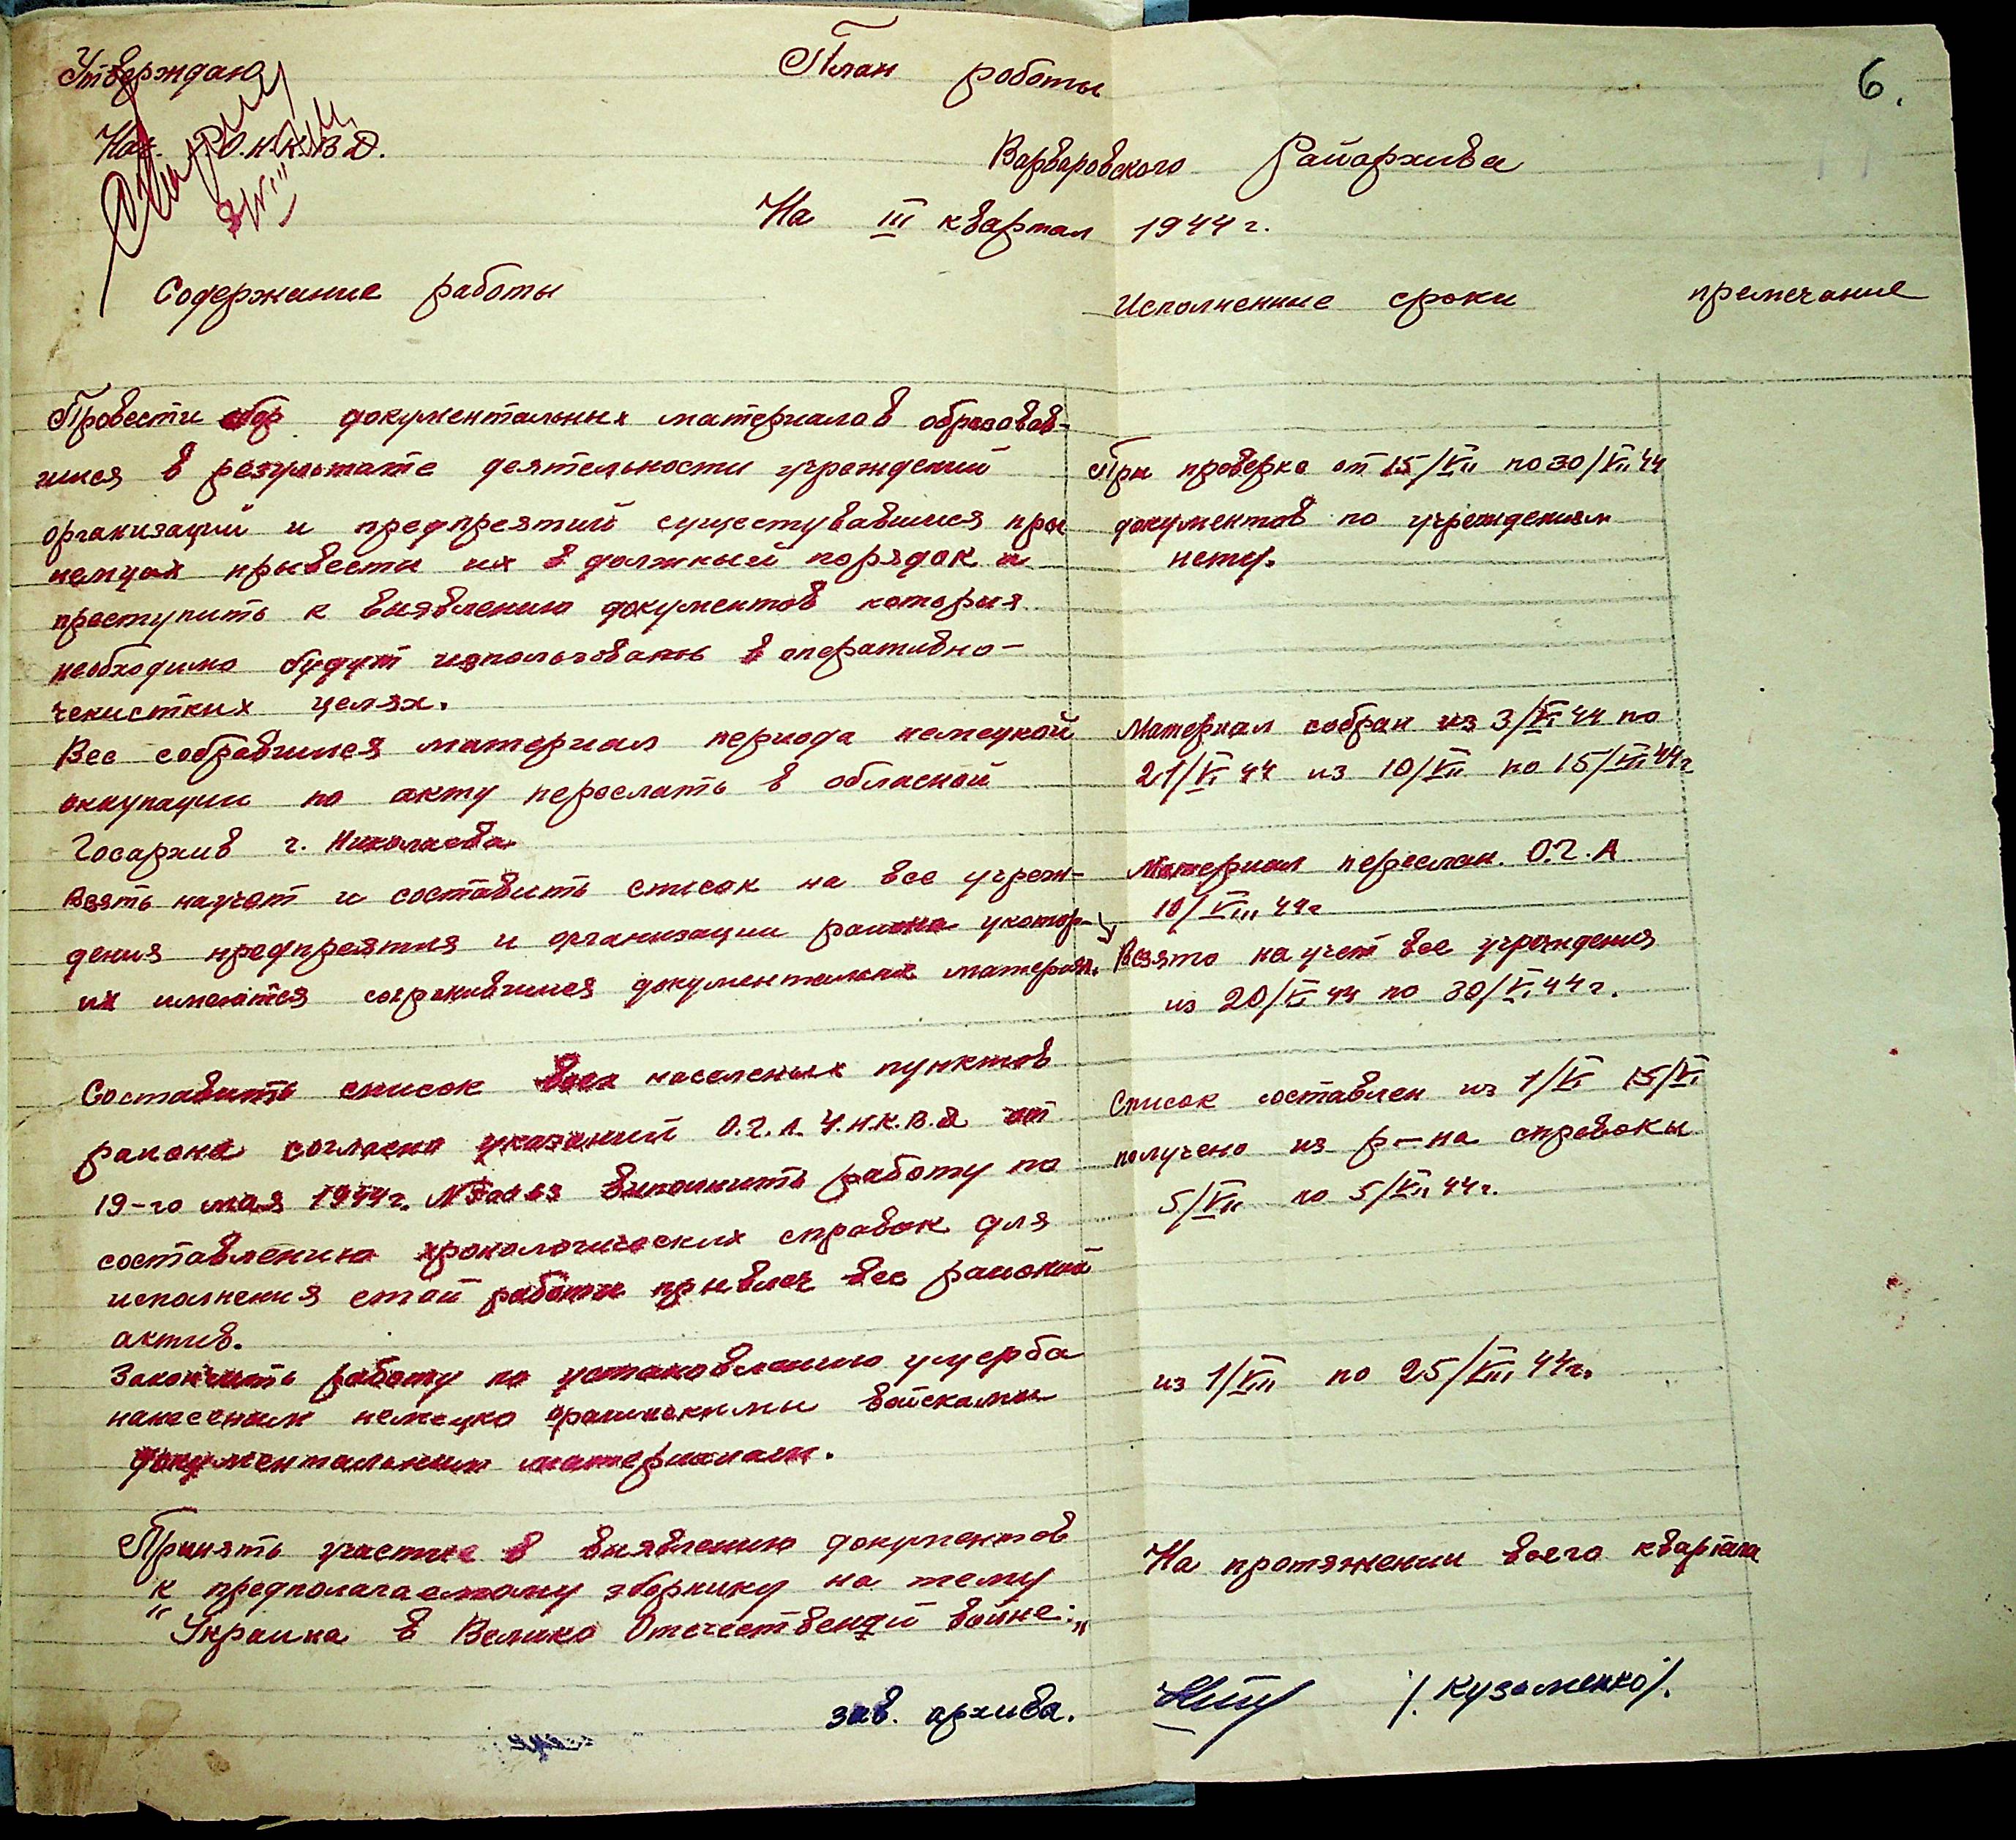 Утверждаю
Нач. Р.О.Н.К.В.Д.
6.
План роботы
Варваровского Райархива
На III квартал 1944 г.
Содержание работы
Исполненние сроки
премечание
Провести сбор документальных материалов образовав-
шися в результате деятельности учреждений
организаций и предпреятий существувавшися при
немцах прывести их в должный порядок и
преступить к виявлению документов которыя
необходимо будут использованы в оперативно-
чекистких целях.
При проверке от 15/VII по 30/VII 44
документов по учреждениям
нету.
Вес собравшися материал периода немецкой
оккупации по акту переслать в обласной
Госархив г. Николаева
Материал собран из 3/VI 44 по
21/VI 44 из 10/VII по 15/VII 44г
Материал переслан. О.Г.А
10/VIII 44г
Взять научот и составить список на все учреж-
дения предпреятия и организации района укотор-
их имеются сохранившися документальние материал.
Взято на учет все учреждения
из 20/VI 44 по 30/VI 44 г.
Составить список всех населеных пунктов
района согласно указаний О.Г.А. У.Н.К.В.Д от
19-го мая 1944г. № виполнить работу по
составлению хронологических справок для
исполнения етой работы прывлеч вес районий
актив.
Список составлен из 1/VI 15/VI
получено из р-на справоки
5/VII по 5/VII 44 г.
Закончить работу по установлению ущерба
нанесеним немецко фашискимы войскамы
документальним материалам.
из 1/VIII по 25/VIII 44г.
Принять участие в виявлению документов
к предполагаемому зборнику на тему
"Украина в Велико Отечественой войне."
На протяжении всего квартала
зав. архива. /. Кузьменко/.